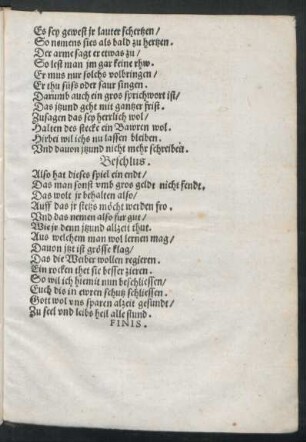 Es sey gewest jr lauter schertzen/
So nemens sies als bald zu hertzen.
Der arme sagt er etwas zu/
So lest man jm gar keine rhw.
Er mus nur solchs volbringen/
Er thu süss oder saur singen.
Darumb auch ein gros sprichwort ist/
Das jtzund geht mit gantzer frist.
Zusagen das sey herrlich wol/
Halten des stecke ein Bawren wol.
Hirbei wil ichs nu lassen bleiben.
Vnd dauon jtzund nicht mehr schreiben.
Beschlus.
Also hat dieses spiel ein endt/
Das man sonst vmb gros geldt nicht fendt.
Das wolt jr behalten also/
Auff das jr stetzs möcht werden fro.
Vnd das nemen also fur gut/
Wie jr denn jtzund allzeit thut.
Aus welchem man wol lernen mag/
Dauon jtzt ist grösse klag/
Das die Weiber wollen regieren.
Ein rocken thet sie besser zieren.
So wil ich hiemit nun beschliessen/
Euch dio in ewren schutz schliessen.
Gott wol vns sparen alzeit gesundt/
Zu seel vnd leibs heil alle stund.
FINIS.